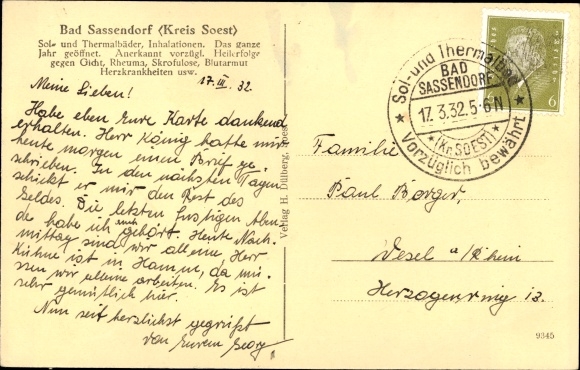 Bad Sassendorf (Kreis Soest)
Sol- und Thermalbäder, Inhalationen. Das ganze
Jahr geöffnet. Anerkannt vorzügl. Heilerfolge
gegen Gicht, Rheuma, Skrofulose, Blutarmut
Herzkrankheiten usw.
17. III. 32.
Meine Lieben!
Habe eben Eure Karte dankend
erhalten. Herr König hatte mir
heute morgen einen Brief ge-
schrieben. In den nächsten Tagen
schickt er mir den Rest des
Geldes. Die letzten lustigen Aben-
de habe ich auch gehört. Heute Nach-
mittag sind wir alleine, Herr
Kühne ist in Hamm, da müs-
sen wir alleine arbeiten. Es ist
sehr gemütlich hier.
Nun seit herzlichst gegrüßt
von Eurem Georg
Verlag H. Dülberg, Soest
Sol- und Thermalbad
BAD
SASSENDORF
17.3.32.5-6N
(Kr. SOEST)
Vorzüglich bewährt
6
Familie
Paul Borger,
Wesel a/Rhein
Herzogenring 13.
9345